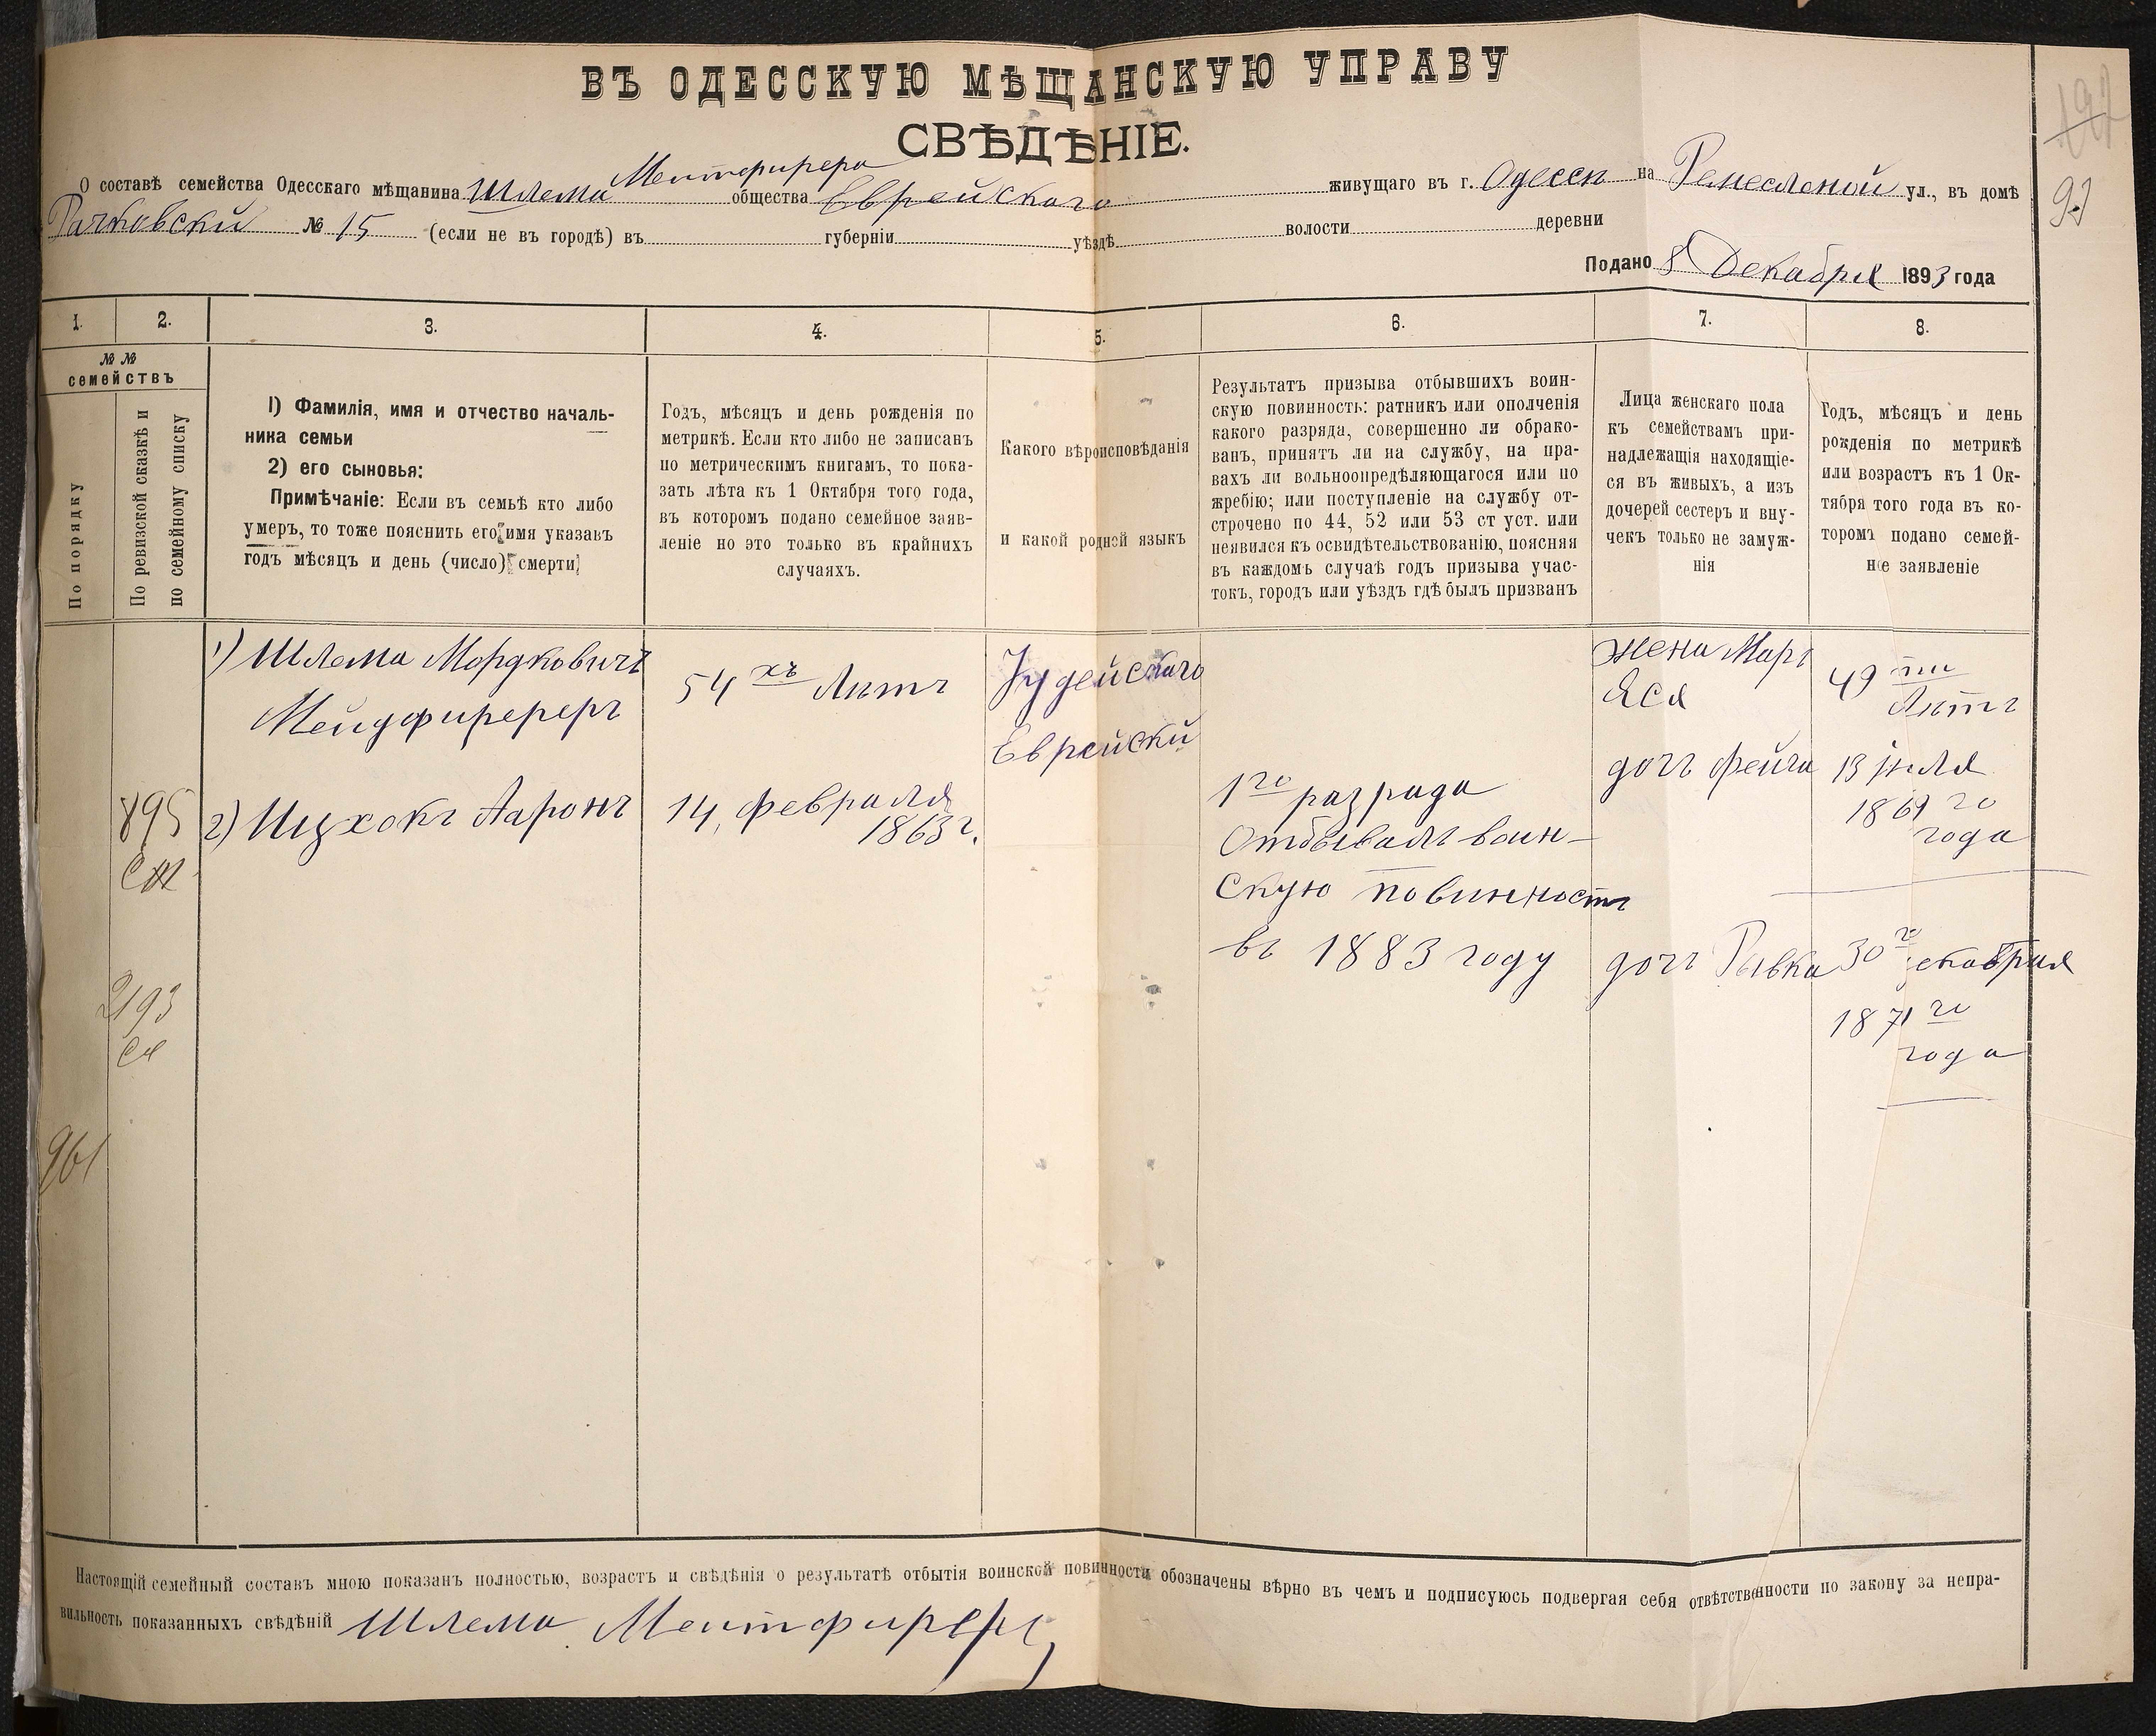 ВЪ ОДЕССКУЮ МѢЩАНСКУЮ УПРАВУ
СВѢДѢНІЕ.
О составѣ семейства Одесскаго мѣщанина Шлема Мептфирера общества Еврейскаго живущаго въ г. Одессѣ на Ремесленой ул., въ домѣ
Рачковский № 15 (если не въ городѣ) въ губерніи уѣздѣ волости деревни
Подано 8 Декабря 1893 года
192
92
1. 2. 3. 4. 5. 6. 7. 8.
№ №
семействъ
По порядку
По ревизской сказкѣ и
по семейному списку
1) Фамилія, имя и отчество началь-
ника семьи
2) его сыновья:
Примѣчаніе: Если въ семьѣ кто либо
умеръ, то тоже пояснить его имя указавъ
годъ мѣсяцъ и день (число) смерти
Годъ, мѣсяцъ и день рожденія по
метрикѣ. Если кто либо не записанъ
по метрическимъ книгамъ, то пока-
зать лѣта къ 1 Октября того года,
въ котоpомъ подано семейное заяв-
леніе но это только въ крайнихъ
случаяхъ.
Какого вѣроисповѣданія
и какой родной языкъ
Результатъ призыва отбывшихъ воин-
скую повинность: ратникъ или ополченія
какого разряда, совершенно ли обрако-
ванъ, принятъ ли на службу, на пра-
вахъ ли вольноопредѣляющагося или по
жребію; или поступленіе на службу от-
строчено по 44, 52 или 53 ст уст. или
неявился къ освидѣтельствованію, поясняя
въ каждомъ случаѣ годъ призыва учас-
токъ, городъ или уѣздъ гдѣ былъ призванъ
Лица женскаго пола
къ семействамъ при-
надлежащія находящіе-
ся въ живыхъ, а изъ
дочерей сестеръ и вну-
чекъ только не замуж-
нія
Годъ, мѣсяцъ и день
рожденія по метрикѣ
или возрастъ къ 1 Ок-
тября того года въ ко-
торомъ подано семей-
ное заявленіе
1) Шлема Мордковичъ
Мейдфиререръ
54 хъ Лѣтъ
Іудейскаго
Еврейский
жена Марі
Яся
49 ти
Лѣтъ
895
2) Ицхокъ Ааронъ
14 февраля
1863 г.
1го разряда
Отбывалъ воин-
скую повинность
въ 1883 году
дочъ Фейга
13 іюля
1869 го
года
2193
961
дочъ Рывка
30 го декабрия
1871 го
года
Настоящій семейный составъ мною показанъ полностью, возрастъ и свѣдѣнія о результатѣ отбытія воинской повинности обозначены вѣрно въ чемъ и подписуюсь подвергая себя отвѣтственности по закону за непра-
вильность показанныхъ свѣдѣній Шлема Мептфирер